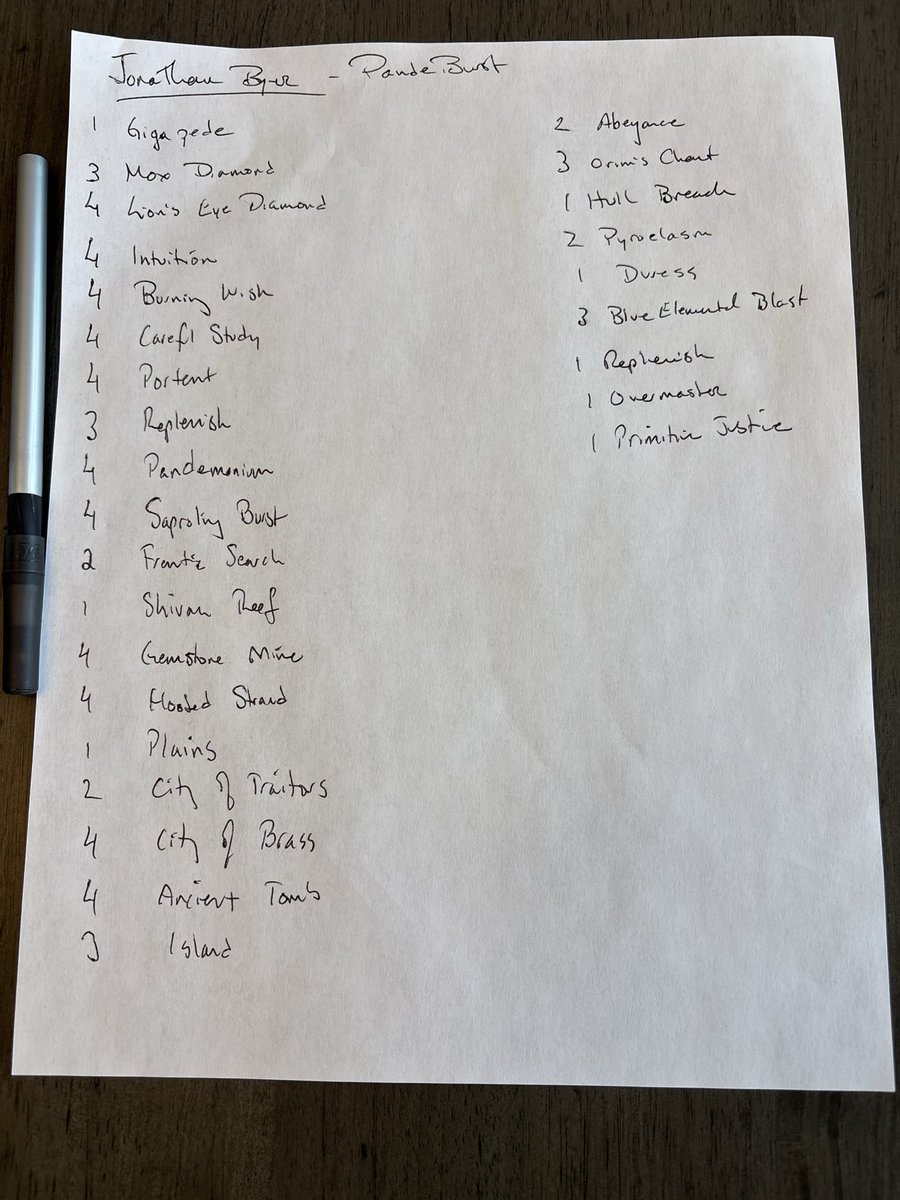 Jonathan Byer - PandeBurst
1 Gigapede
3 Mox Diamond
4 Lion's Eye Diamond
4 Intuition
4 Burning Wish
4 Carefl Study
4 Portent
3 Replenish
4 Pandemonium
4 Saproling Burst
2 Frantic Search
1 Shivan Reef
4 Gemstone Mine
4 Flooded Strand
1 Plains
2 City of Traitors
4 City of Brass
4 Ancient Tomb
3 Island
2 Abeyance
3 Orim's Chant
1 Hull Breach
2 Pyroclasm
1 Duress
3 Blue Elemental Blast
1 Replenish
1 Overmaster
1 Primitive Justice